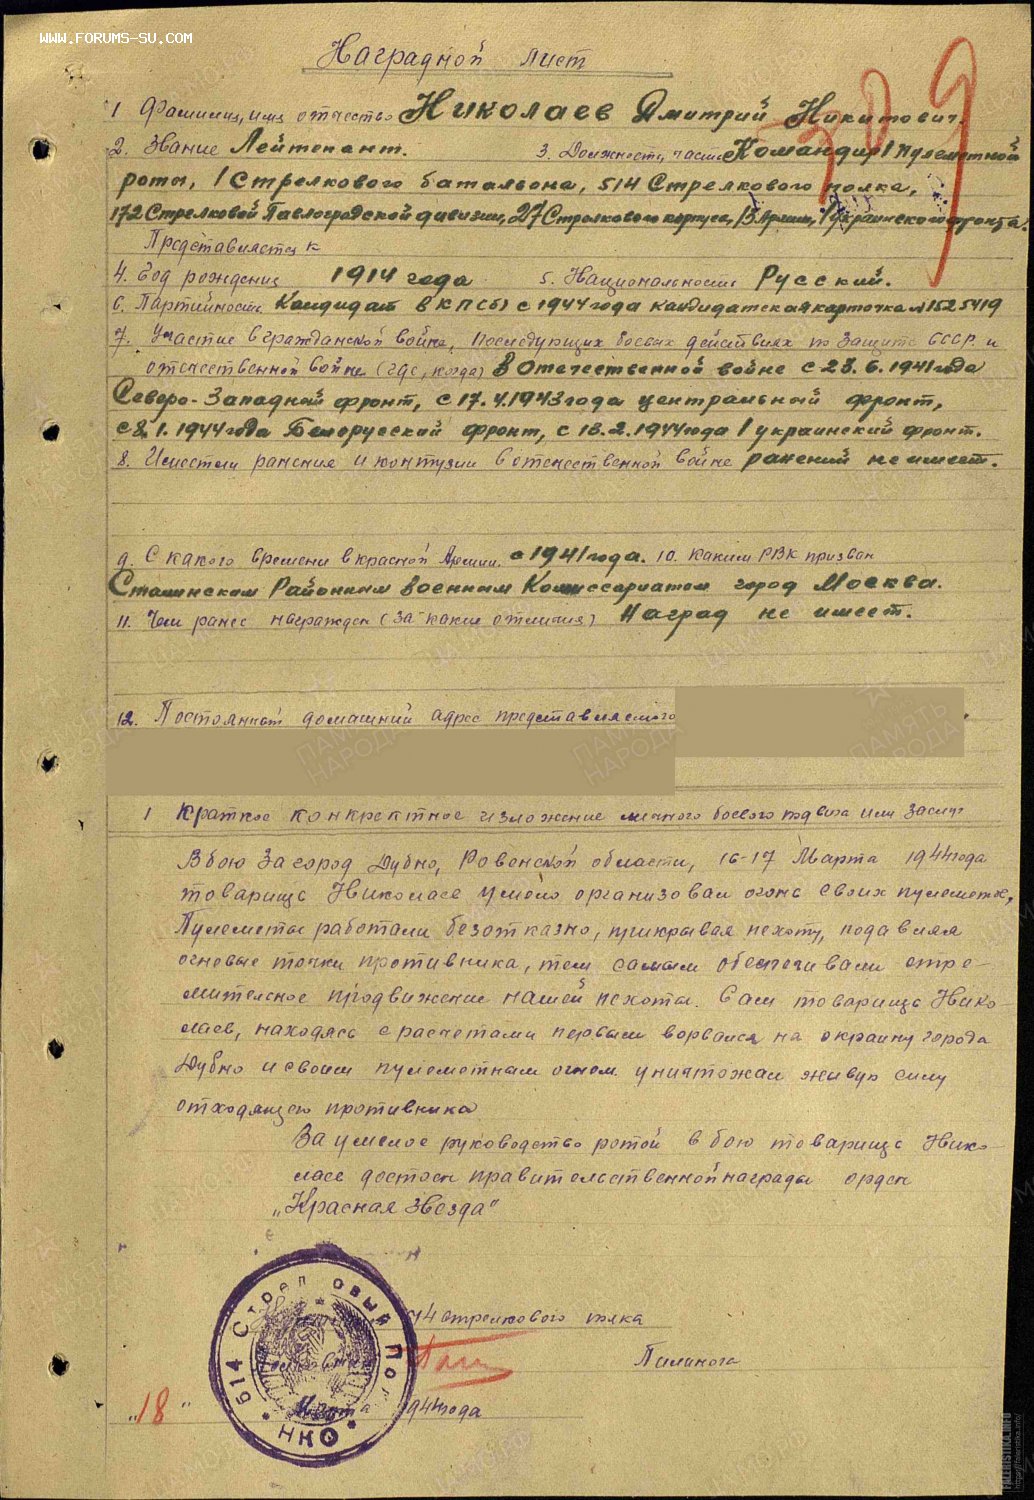 WWW.FORUMS-SU.COM
Наградной лист
309
1 Фамилия, имя отчество Николаев Дмитрий Никитович.
2. Звание Лейтенант. 3. Должность, часть Командир 1 пулеметной
роты, 1 Стрелкового батальона, 514 Стрелкового полка,
172 Стрелковой Павлоградской дивизии, 27 Стрелкового корпуса, 13 Армии, 1 украинского фронта.
Представляется к
4. Год рождения 1914 года 5. Национальность Русский.
6. Партийность Кандидат ВКП(б) с 1944 года кандидатская карточка № 1525419
7. Участие в гражданской войне, последующих боевых действиях по защите СССР и
отечественной войне (где, когда) В Отечественной войне с 23.6.1941 года
Северо-Западный фронт, с 17.4.1943 года центральный фронт,
с 8.1.1944 года Белорусский фронт, с 18.2.1944 года 1 украинский фронт.
8. Имеет ли ранения и контузии в отечественной войне ранений не имеет.
9. С какого времени в красной Армии. с 1941 года. 10. каким РВК призван
Сталинским Районным военным Комиссариатом город Москва.
11. Чем ранее награжден (за какие отличия) Наград не имеет.
12. Постоянный домашний адрес представляемого
1 Краткое конкретное изложение личного боевого подвига или заслуг
В бою за город Дубно, Ровенской области, 16-17 Марта 1944 года
товарищ Николаев умело организовал огонь своих пулеметов,
Пулеметы работали безотказно, прикрывая пехоту, подавляя
огневые точки противника, тем самым обеспечивали стре-
мительное продвижение нашей пехоты. Сам товарищ Нико-
лаев, находясь с расчетами первым ворвался на окраину города
Дубно и своим пулеметным огнем уничтожал живую силу
отходящего противника
За умелое руководство ротой в бою товарищ Нико-
лаев достоин правительственной награды орден
„Красная Звезда"
514 стрелковый пол
НКО
14 стрелкового полка
„18" Марта 1944 года
ПАМЯТЬ НАРОДА
FALERISTIKA.INFO